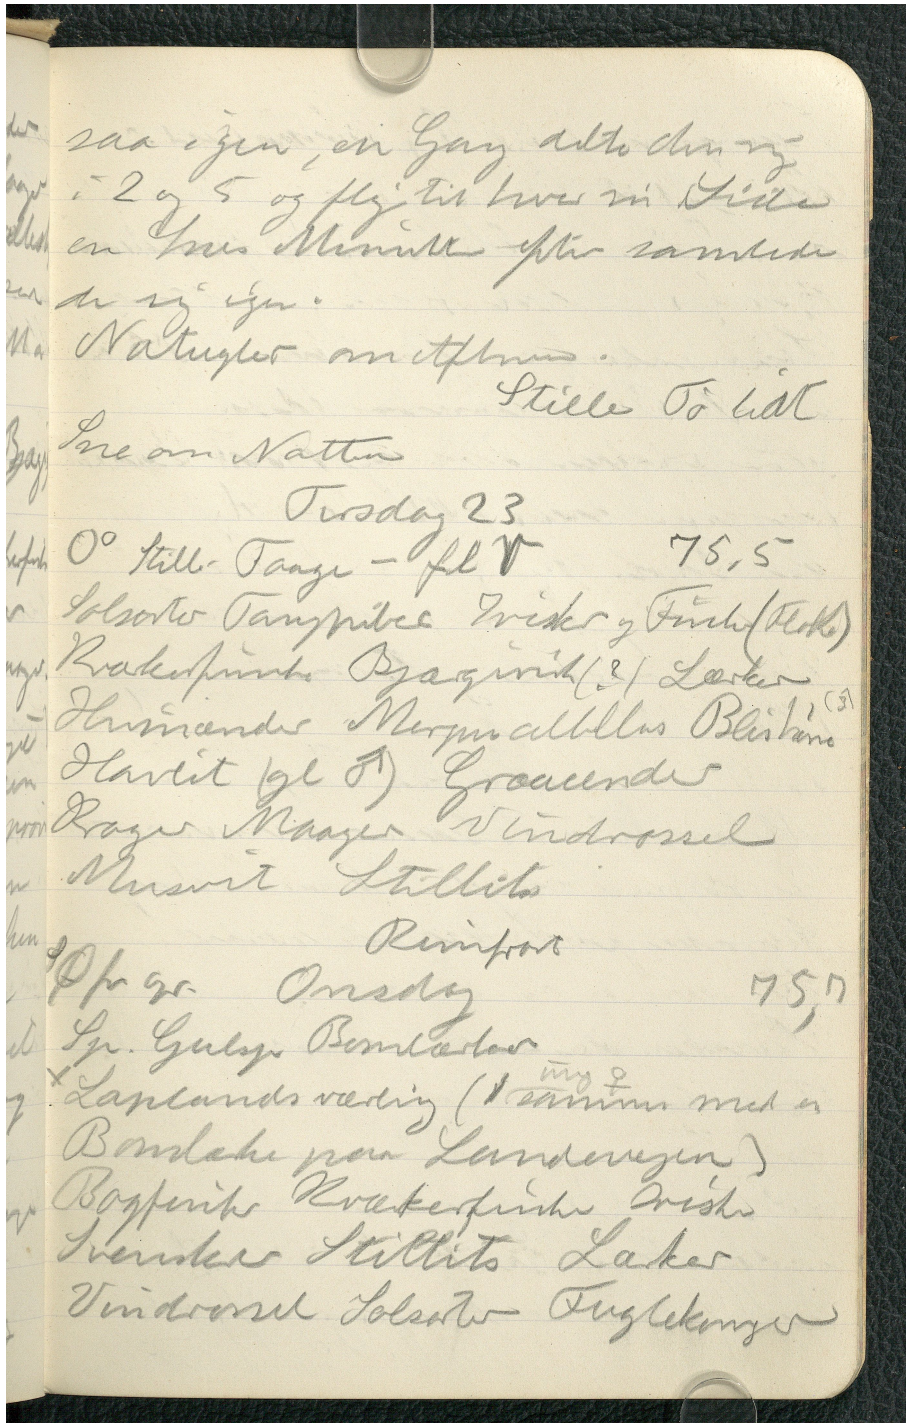 saa igen, en Gang delte den sig
i 2 og 5 og fløj til hver sin Side
en Minutter efter samlede
de sig igen.
Natugler om Aftnen.
Stille Tø lidt
Sne om Natten
Tirsdag 23
0° Stille Taage - 75,5
Solsorter Irisker og Finker (Flokke)
Kvækerfinke Bjærgirisk (?) Lærker
Hvinænder Mergus albellus Blishøne (3)
Havlit (gl ♂) Graaænder
Krager Maager Vindrossel
Musvit Stillits
Rimfrost
Onsdag 75,7
Sp. Gulsp. Bomlærker
x Laplandsværling (1 ung ♀ sammen med en
Bomlærke paa Landevejen)
Bogfinke Kvækerfinke Iriske
Svenskere Stillits Lærker
Vindrossel Solsorter Fuglekonger